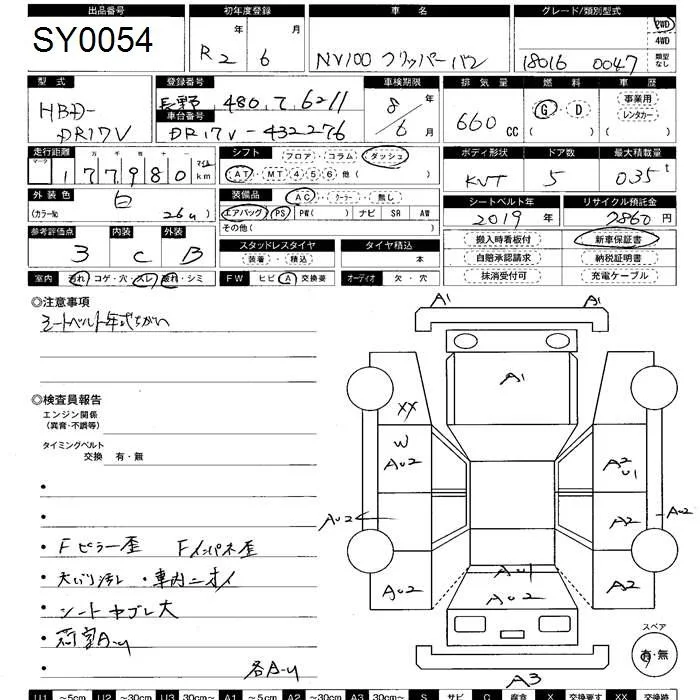 出品番号 初年度登録 車名 グレード/類別型式
SY0054 R2年 6月 NV100 クリッパーバン 18016 0047 2WD
4WD
類型なし
型式 登録番号 車検期限 排気量 燃料 車歴
HBD-DR17V 長野 480 6211 8年 6月 660cc G・D ( ) 事業用 レンタカー ( )
車台番号
DR17V-432276
走行距離 シフト フロア・コラム・ダッシュ ボディ形状 ドア数 最大積載量
マーク 十万 千 百 十
177980 マイル km AT MT 4 5 6 他 ( ) 5 035t
外装色 装備品 AC・クーラー・無し シートベルト年 リサイクル預託金
白 エアバッグ PS PW( ) ナビ SR AW 2019年 7860円
(カラーNo 26u) その他 ( )
参考評価点 内装 外装 スタッドレスタイヤ タイヤ積込 搬入時看板付 新車保証書
3 C B 装着・積込 本 自賠承認請求 納税証明書
室内 汚れ・コゲ・穴・スレ・破れ・シミ FW ヒビ・A・交換要 オーディオ 欠・穴 抹消受付可 充電ケーブル
◎注意事項
シートベルト年式ちがい
◎検査員報告
エンジン関係
(異音・不調等)
タイミングベルト
交換 有・無
・Fピラー歪 Fインパネ歪
・天バリ汚れ ・車内ニオイ
・シートヤブレ大
・荷室A-U
・各A-U
A1 A1
A1
XX
W
AU2 A2 U1
AU2 A2 AU2
AU2 A2
AU1
AU2
A3
スペア
有・無
U1 ～5cm U2 ～30cm U3 30cm～ A1 ～5cm A2 ～30cm A3 30cm～ S サビ C 腐食 X 交換要 XX 交換跡